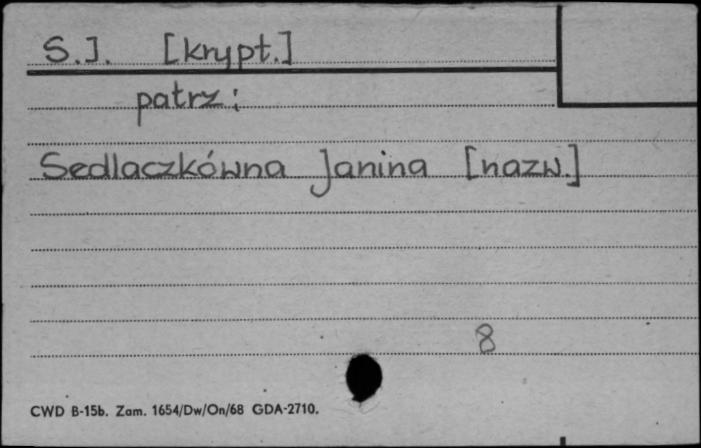 S.J. [krypt.]
patrz:
Sedlaczkówna Janina [nazw.]
8
CWD B-15b. Zam. 1654/Dw/On/68 GDA-2710.